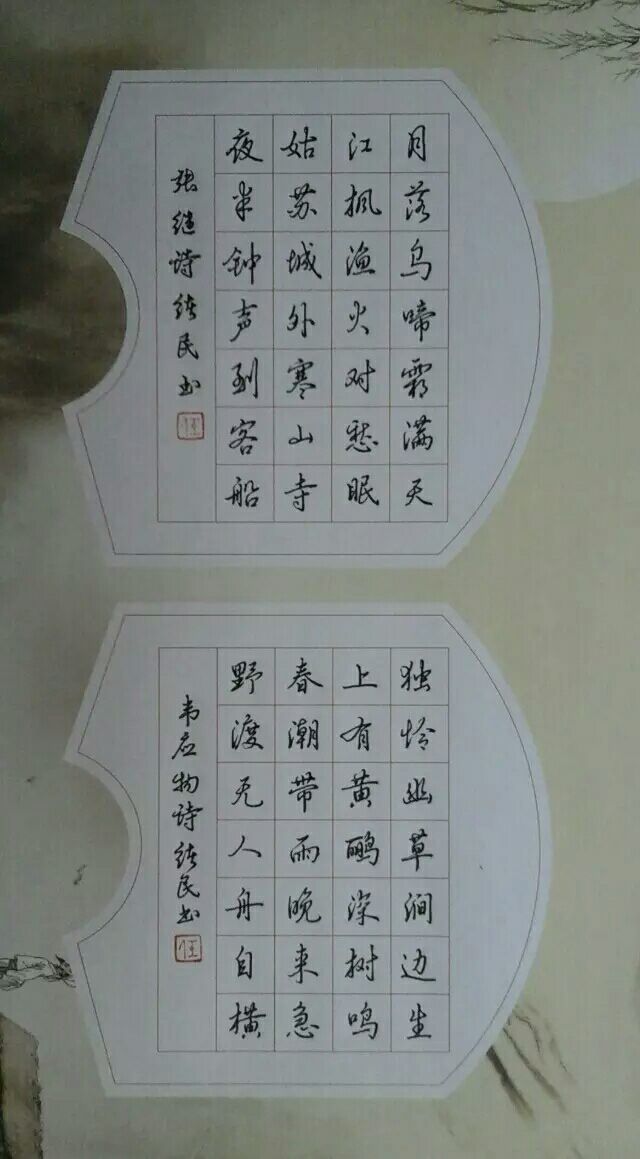 月落乌啼霜满天
江枫渔火对愁眠
姑苏城外寒山寺
夜半钟声到客船
张继诗 民书
任
独怜幽草涧边生
上有黄鹂深树鸣
春潮带雨晚来急
野渡无人舟自横
韦应物诗 民书
任